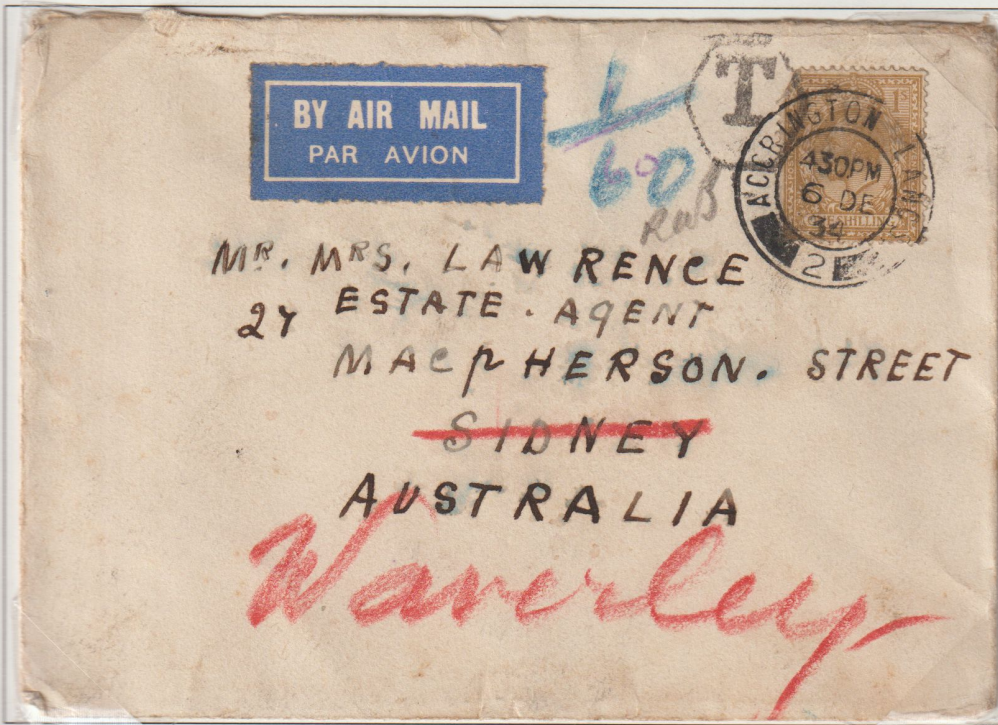 BY AIR MAIL
PAR AVION
1
60
T
ACCRINGTON LANCS
430PM
6 DE
34
2
MR. MRS. LAWRENCE
27 ESTATE. AGENT
MACPHERSON. STREET
SIDNEY
AUSTRALIA
Waverley